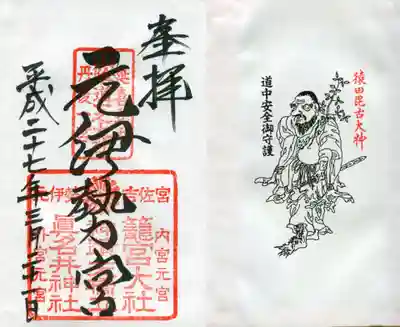 奉拝
元伊勢宮
平成二十七年三月二十一日
元伊勢
吉佐宮
籠宮大社
眞名井神社
内宮元宮
外宮元宮
猿田毘古大神
道中安全御守護